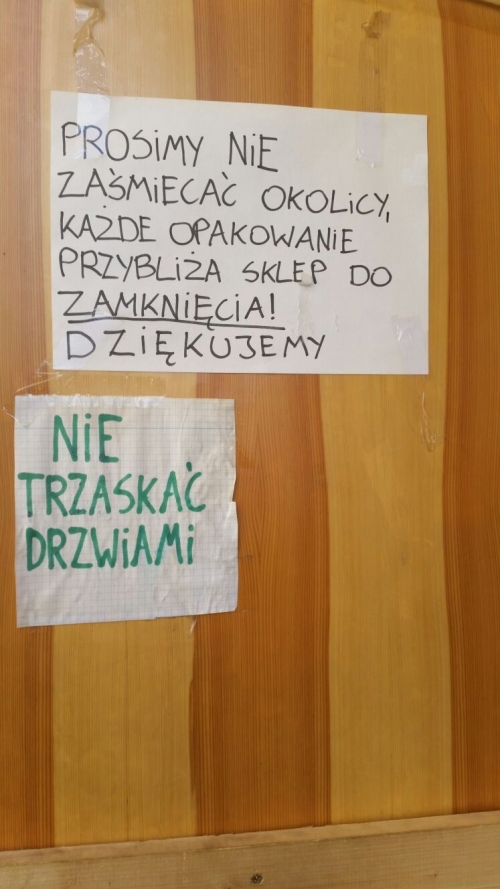 PROSIMY NIE
ZAŚMIECAĆ OKOLICY,
KAŻDE OPAKOWANIE
PRZYBLIŻA SKLEP DO
ZAMKNIĘCIA!
DZIĘKUJEMY
NIE
TRZASKAĆ
DRZWIAMI